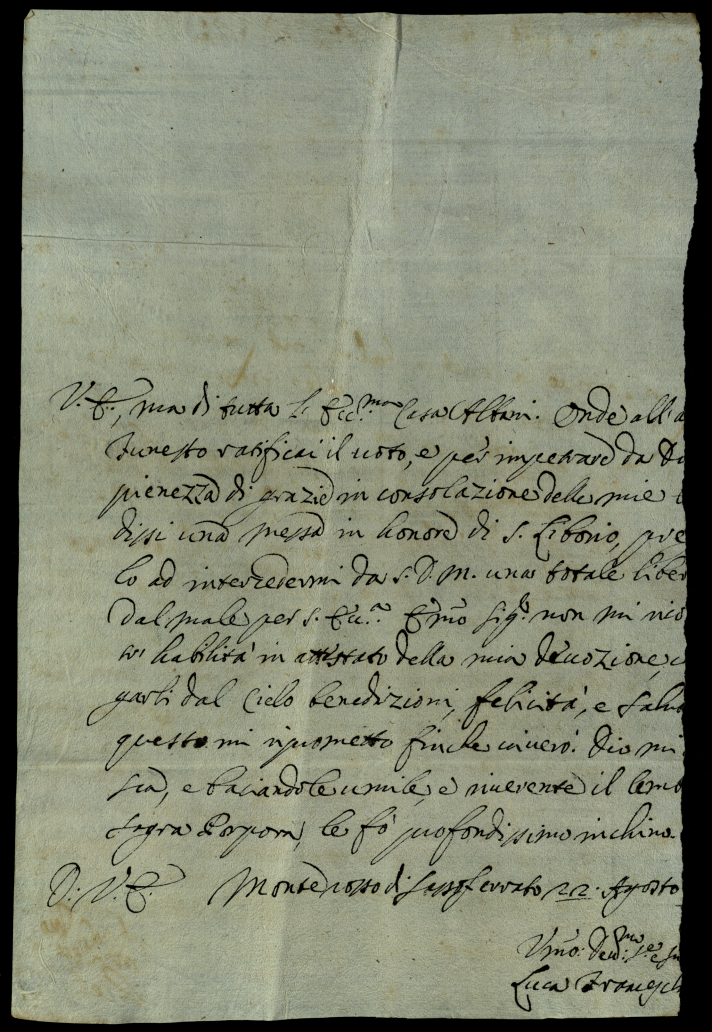 V. E., ma di tutta l'Ecc.ma Casa Albani. Onde all'a
funesto ratificai il uoto, e per impetrare da D
pienezza di grazie in consolazione delle mie
dissi una messa in honore di S. Liborio, pre
lo ad intercedermi da S. D. M. una totale liber
dal male per S. Ecc.a E.mo Sig.r non mi rico
habilità in attestato della mia deuozione,
garli dal Cielo benedizioni, felicità, e salu
questo mi riprometto finche uiuerò. Dio mi
sia, e baciandole umile, e riuerente il lemb
sagra Porpora, le fò profondissimo inchino.
D. V. E. Monterosso di Sassoferrato 22. Agosto
Vmo: Deu:mo Se
Luca Francesch